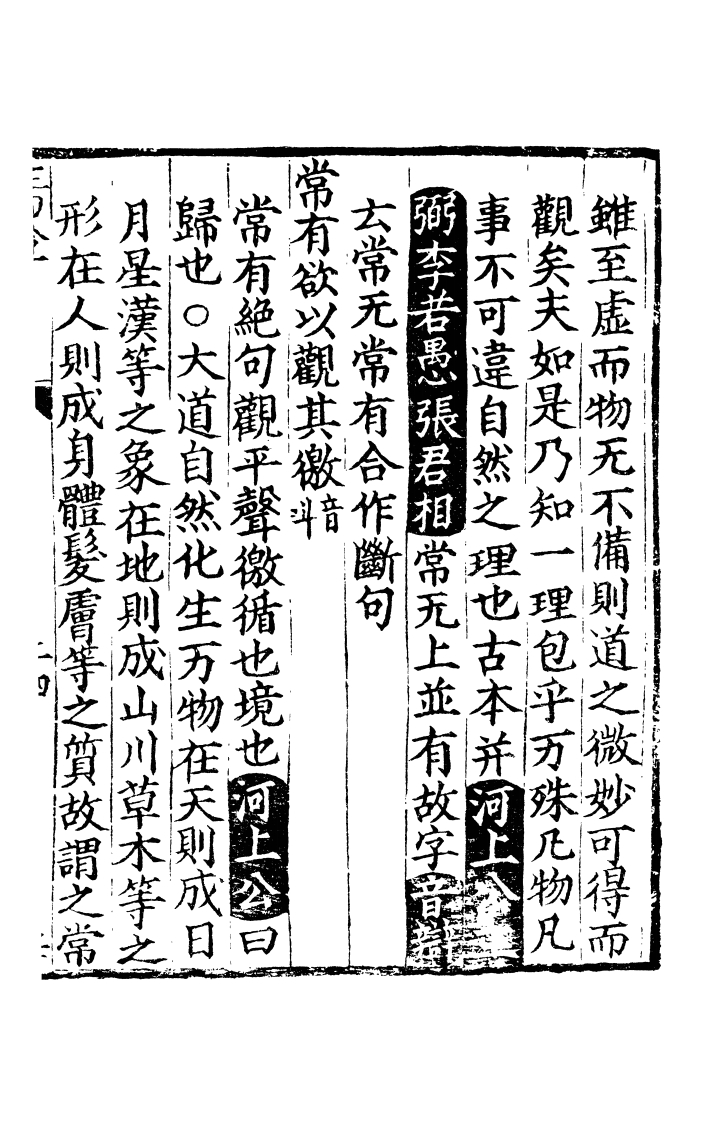 雖至虚而物无不備則道之微妙可得而
觀矣夫如是乃知一理包乎万殊凡物凡
事不可違自然之理也古本并河上公王
弼李若愚張君相常无上並有故字音辯
云常无常有合作斷句
常有欲以觀其徼音斗
常有絶句觀平聲徼循也境也河上公曰
歸也○大道自然化生万物在天則成日
月星漢等之象在地則成山川草木等之
形在人則成身體髮膚等之質故謂之常